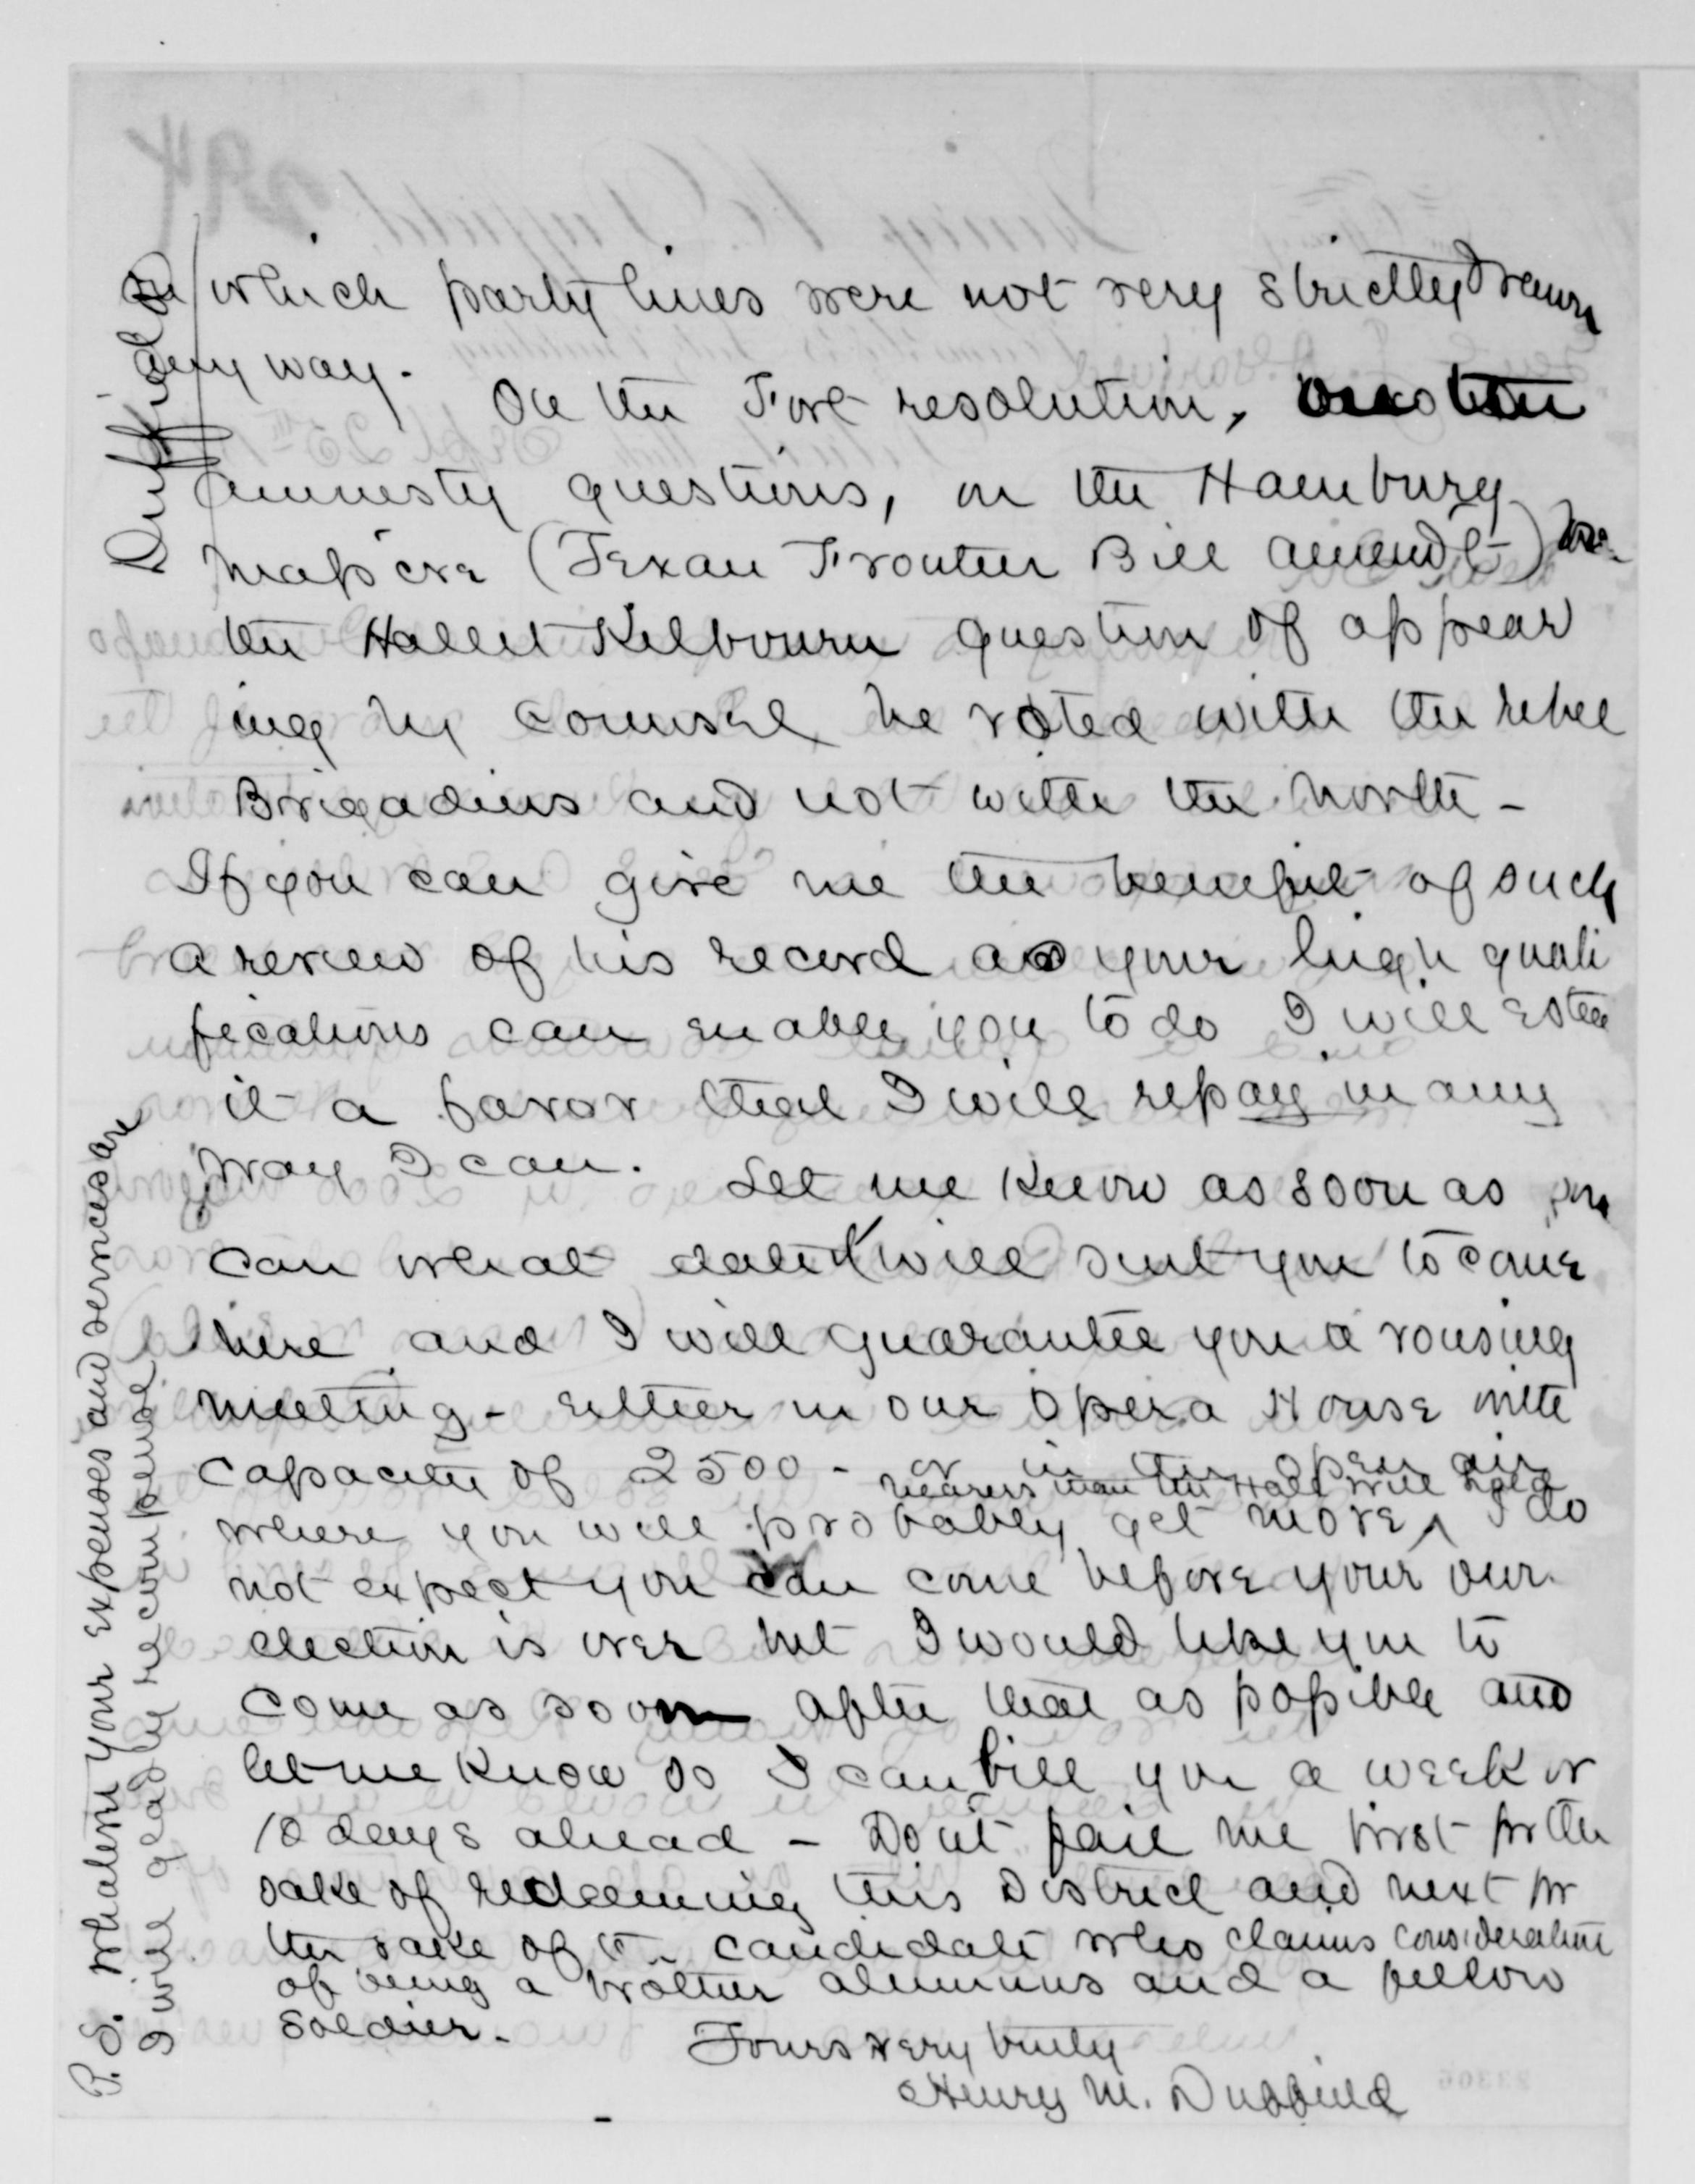 Duffield
on which party lines were not very strictly drawn
any way.
On the Fort resolution, on the
amnesty questions, on the Hamburg
massacre (Texan Frontier Bill amendt) on
the Hallet Kilbourn question of appear
ing by counsel he voted with the rebel
Brigadiers and not with the North -
If you can give me the benefit of such
a review of his record as your high quali
fications can enable you to do I will esteem
it a favor that I will repay in any
way I can.
Let me know as soon as you
can what date will suit you to come
here and I will guarantee you a rousing
meeting - either in our Opera House with
capacity of 2500 - or in the open air
where you will probably get more
hearers than the Hall will hold
I do
not expect you can come before your own
election is over but I would like you to
come as soon after that as possible and
let me know so I can bill you a week or
10 days ahead - Don't fail me first for the
sake of redeeming this District and next for
the sake of its candidate who claims consideration
of being a brother alumnus and a fellow
soldier.
Yours very truly
Henry M. Duffield
P.S. Whatever your expenses and services are
I will gladly recompense